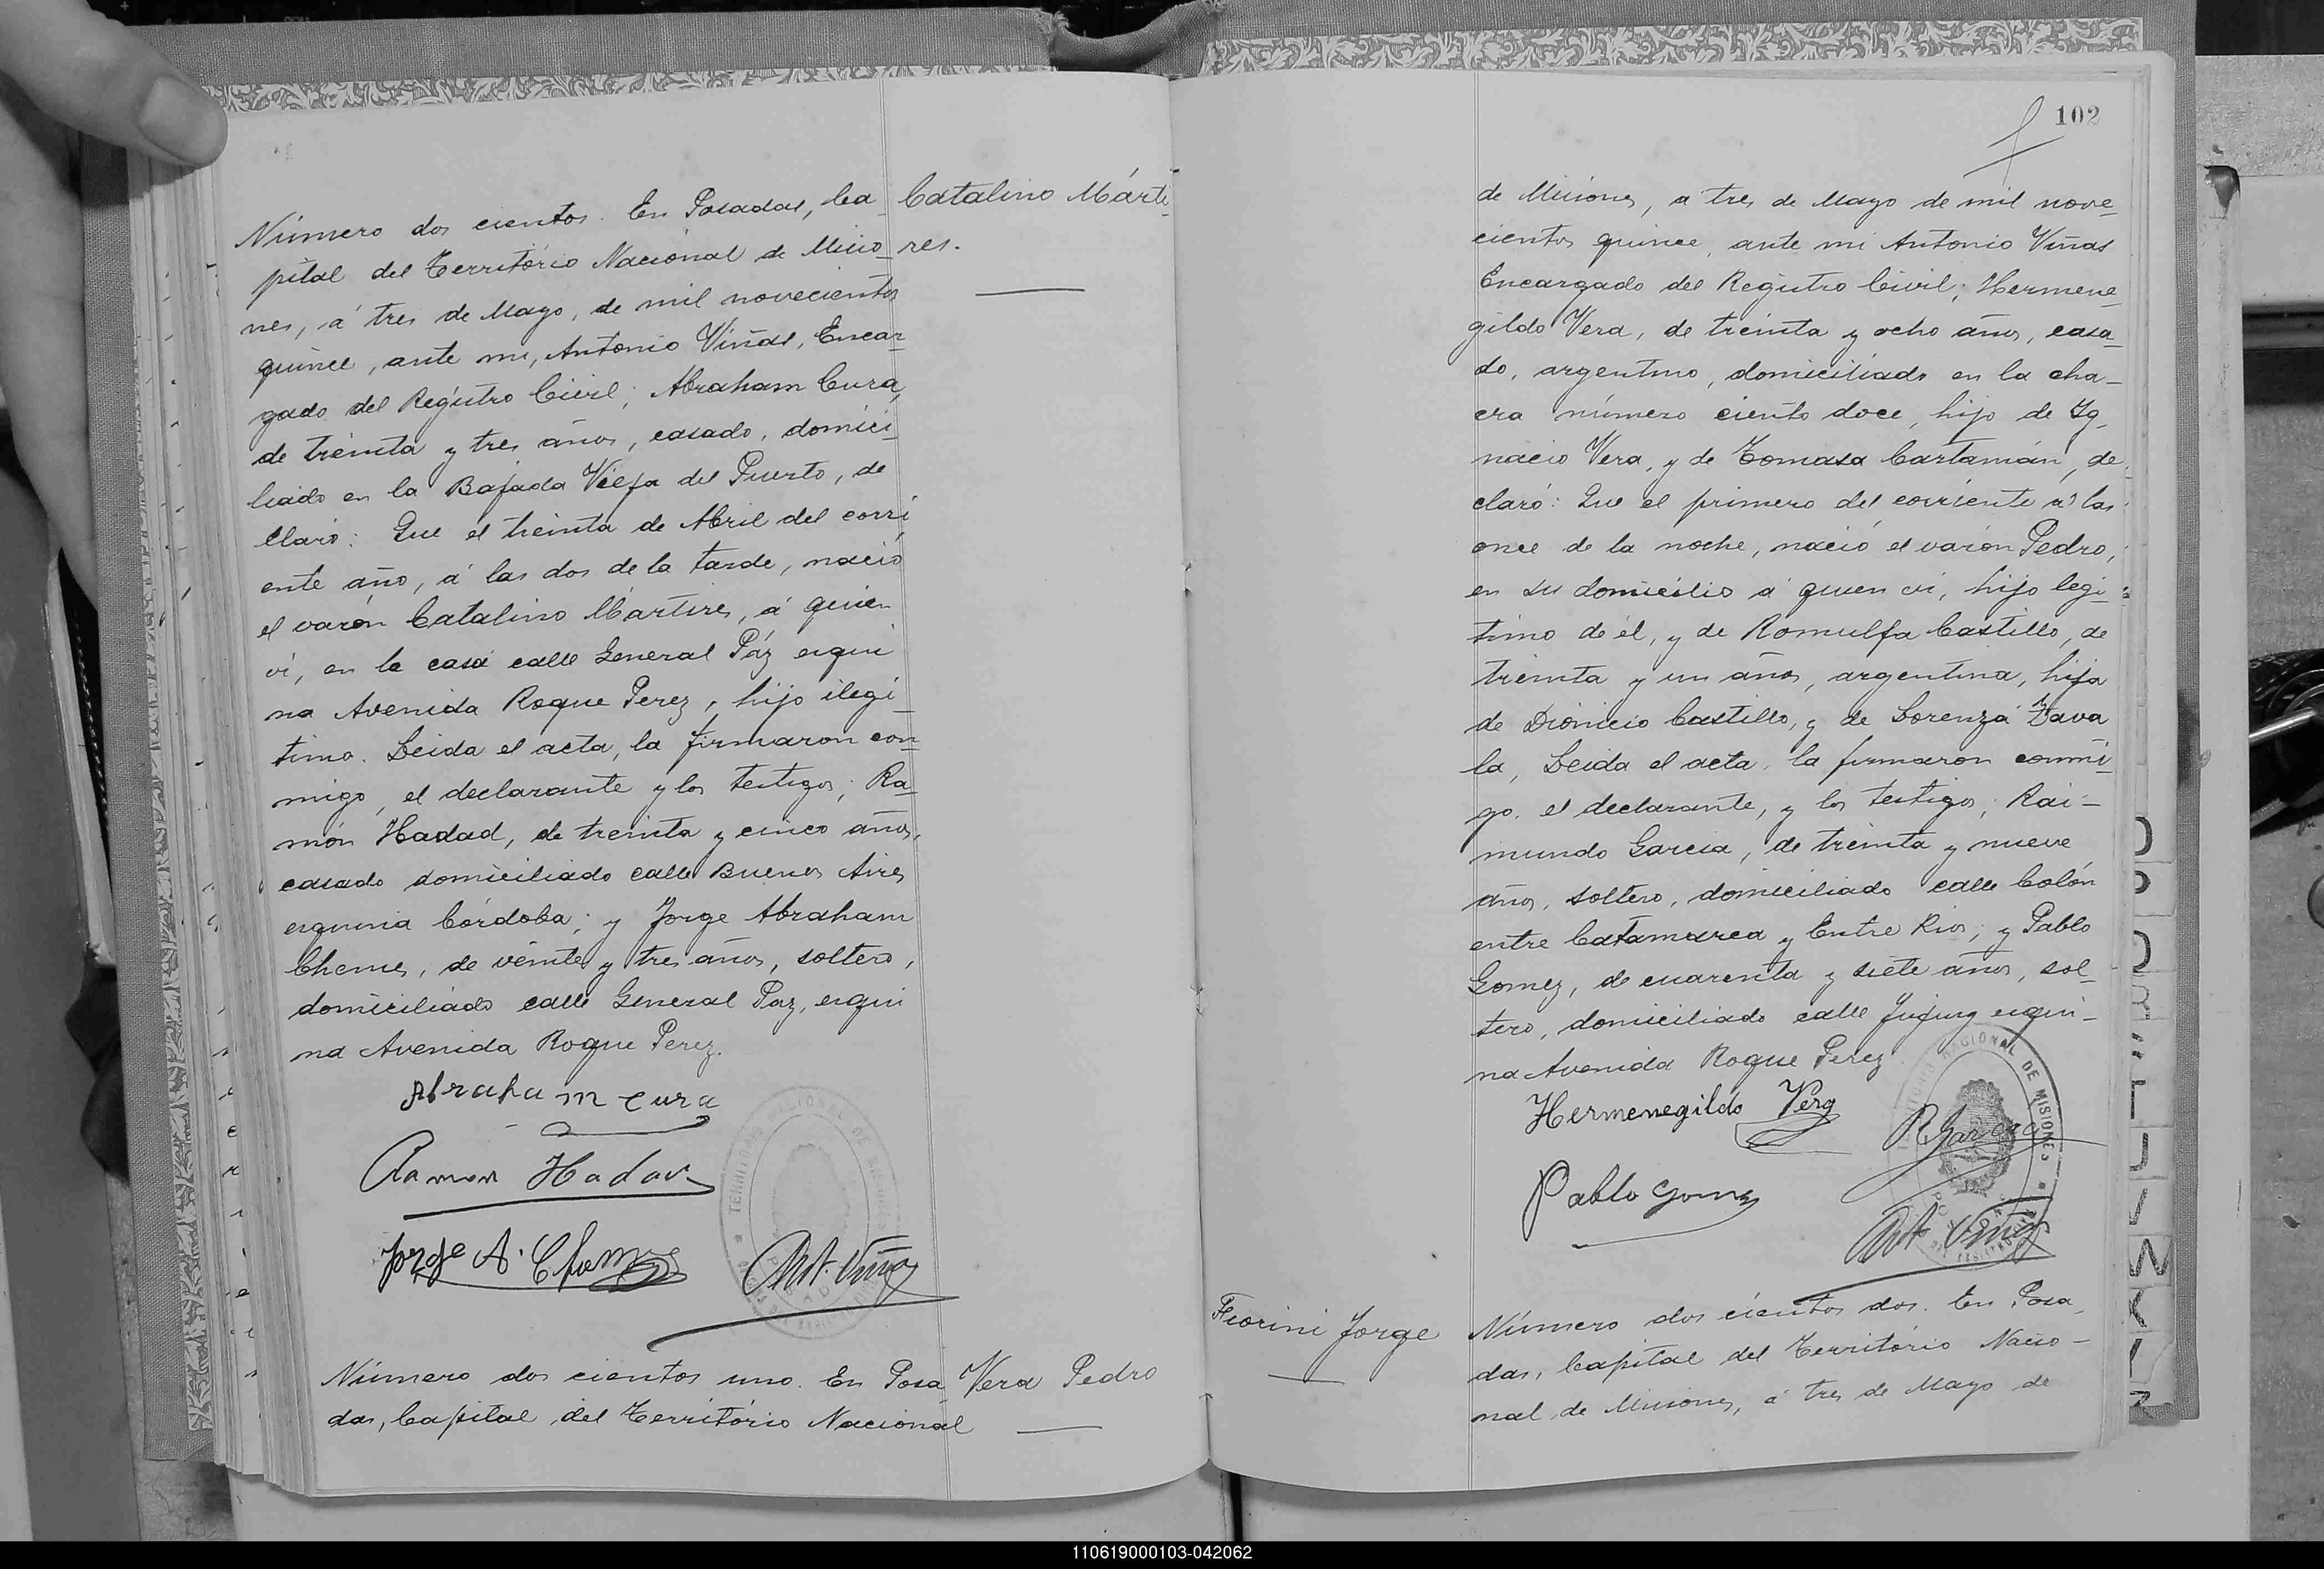 Número dos cientos. En Posadas, Ca_
pital del Território Nacional de Misio_
nes, á tres de Mayo, de mil novecientos
quince, ante mi, Antonio Viñas, Encar_
gado del Registro Civil; Abraham Cura,
de treinta y tres años, casado, domici_
liado en la Bajada Vieja del Puerto, de
claró: Que el treinta de Abril del corri_
ente año, á las dos de la tarde, nació
el varón Catalino Mártires, á quien
ví, en la casa calle General Páz esqui
na Avenida Roque Perez, hijo ilegi_
timo. Leida el acta, la firmaron con_
migo, el declarante y los testigos; Ra_
món Hadad, de treinta y cinco años,
casado domiciliado calle Buenos Aires
esquina Córdoba; y Jorge Abraham
Chemes, de veinte y tres años, soltero,
domiciliado calle General Paz, esqui
na Avenida Roque Perez.
Catalino Márti_
res.
Abraham Cura
Ramon Hadad
Jorge A. Chemes
Ant. Viñas
TERRITORIO NACIONAL DE MISIONES
Número dos cientos uno. En Posa
das, Capital del Território Nacional
Vera Pedro
102
de Misiones, a tres de Mayo de mil nove_
cientos quince, ante mi Antonio Viñas
Encargado del Registro Civil; Hermene_
gildo Vera, de treinta y ocho años, casa_
do, argentino, domiciliado en la cha_
cra número ciento doce, hijo de Ig_
nacio Vera, y de Tomasa Cartamán, de_
claró: Que el primero del corriente á las
once de la noche, nació el varón Pedro,
en su domicilio á quien ví, hijo legi_
timo de él, y de Romulfa Castillo, de
treinta y un años, argentina, hija
de Dionicio Castillo, y de Lorenza Zava
la, Leida el acta, la firmaron conmi_
go, el declarante, y los testigos; Rai_
mundo Garcia, de treinta y nueve
años, soltero, domiciliado calle Colón
entre Catamarca y Entre Rios; y Pablo
Gomez, de cuarenta y siete años, sol_
tero, domiciliado calle Jujuy esqui_
na Avenida Roque Perez.
Hermenegildo Vera
R Garcia
Pablo Gomez
Ant Viñas
NACIONAL DE MISIONES
Fiorini Jorge
Número dos cientos dos. En Posa_
das, Capital del Território Nacio_
nal de Misiones, á tres de Mayo de
110619000103-042062